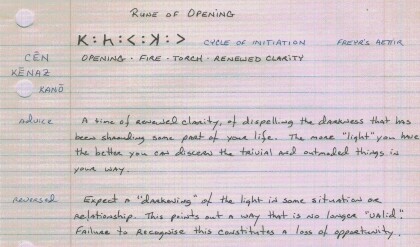 RUNE OF OPENING
K : h : < : ꓘ : > CYCLE OF INITIATION FREYR'S AETTIR
CĒN OPENING · FIRE · TORCH · RENEWED CLARITY
KĒNAZ
KANŌ
ADVICE A time of renewed clarity, of dispelling the darkness that has
been shrouding some part of your life. The more "light" you have
the better you can discern the trivial and outmoded things in
your way.
REVERSED Expect a "darkening" of the light in some situation or
relationship. This points out a way that is no longer "valid".
Failure to recognise this constitutes a loss of opportunity.